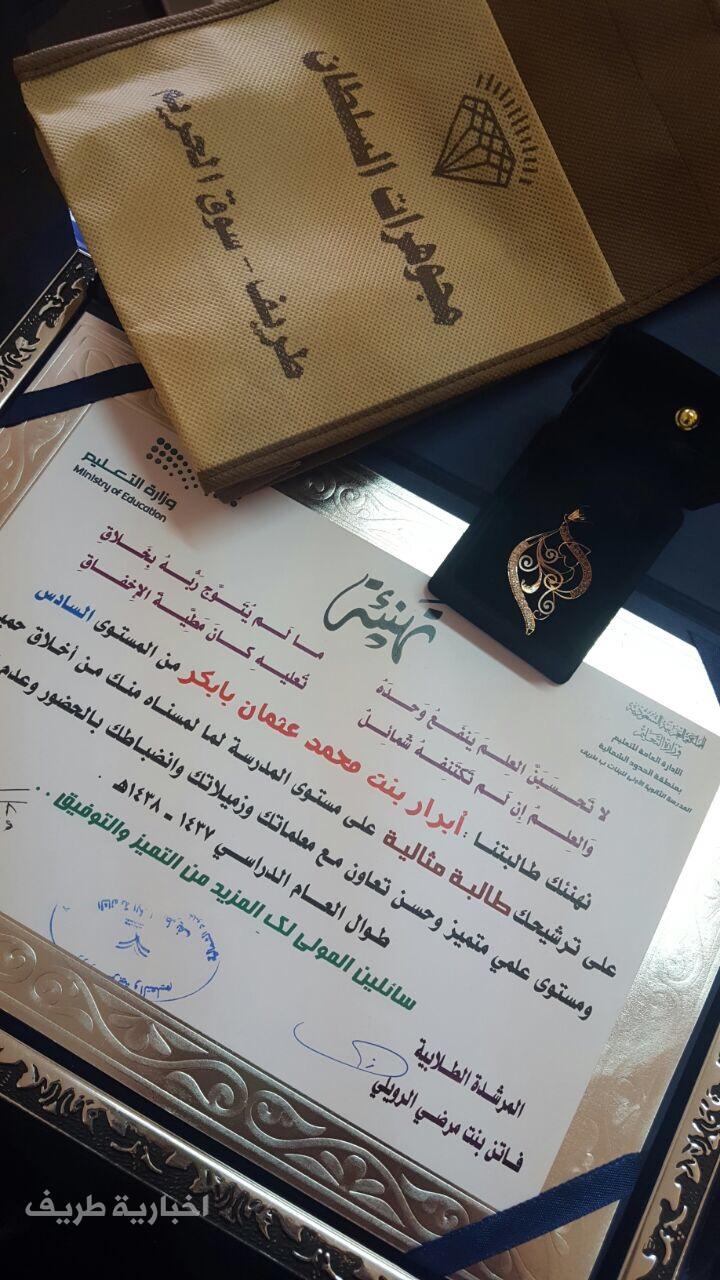 مجوهرات السلطان
طريف - سوق الحريم
المملكة العربية السعودية
وزارة التعليم
الإدارة العامة للتعليم
بمنطقة الحدود الشمالية
المدرسة الثانوية الأولى للبنات بطريف
وزارة التعليم
Ministry of Education
تهنئة
لا تَحسَبَنَّ العِلمَ يَنفَعُ وَحدَهُ
ما لَم يُتَوَّج رَبُّهُ بِخَلاقِ
وَالعِلمُ إِن لَم تَكتَنِفهُ شَمائِلٌ
تُعليهِ كانَ مَطِيَّةَ الإِخفاقِ
نهنئك طالبتنا : أبرار بنت محمد عثمان بابكر من المستوى السادس
على ترشيحك طالبة مثالية على مستوى المدرسة لما لمسناه منك من أخلاق
ومستوى علمي متميز وحسن تعاون مع معلماتك وزميلاتك وانضباطك بالحضور وعدم
طوال العام الدراسي ١٤٣٧ - ١٤٣٨هـ .
سائلين المولى لكِ المزيد من التميز والتوفيق ..
المرشدة الطلابية
فاتن بنت مرضي الرويلي
اخبارية طريف